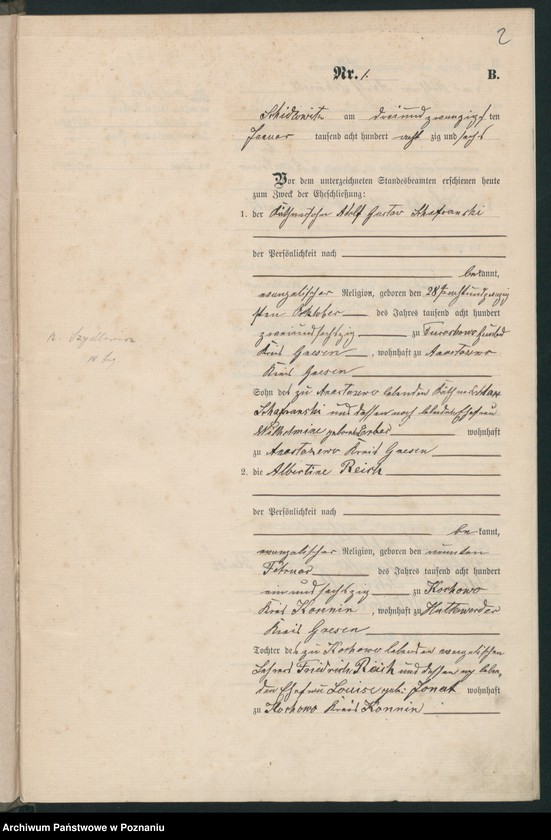 2
Nr. 1. B.
am dreiundzwanzigsten
Januar tausend acht hundert acht zig und sechs
Vor dem unterzeichneten Standesbeamten erschienen heute
zum Zweck der Eheschließung:
1. der Adolf Gustav Schafranski
der Persönlichkeit nach
bekannt,
evangelischer Religion, geboren den 28
sten Oktober des Jahres tausend acht hundert
zweiundsechszig zu
Kreis Gnesen, wohnhaft zu Anastazewo
Kreis Gnesen
Sohn des zu Anastazewo lebenden
Schafranski und dessen noch lebenden Ehefrau
geborene wohnhaft
zu Anastazewo Kreis Gnesen
2. die Albertine Reich
der Persönlichkeit nach
bekannt,
evangelischer Religion, geboren den neunten
Februar des Jahres tausend acht hundert
einundsechszig zu Kochowo
Kreis Konnin, wohnhaft zu
Kreis Gnesen
Tochter des zu Kochowo lebenden evangelischen
Lehrers Friedrich Reich und dessen
Ehefrau Louise geb: Jonat wohnhaft
zu Kochowo Kreis Konnin
Archiwum Państwowe w Poznaniu